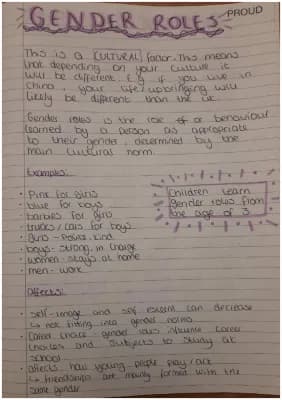 GENDER ROLES
PROUD
This is a CULTURAL factor. This means
that depending on your culture it
will be different. E.g if you live in
China, your life/upbringing will
likely be different than the uk.
Gender roles is the role or behaviour
learned by a person as appropriate
to their gender, determined by the
main cultural norm.
Examples:
• Pink for girls
• blue for boys
• barbies for girls
• trucks/cars for boys
• girls - polite, kind
• boys - strong, in charge
• women - stays at home
• men - work
Children learn
gender roles from
the age of 3
Affects:
• self-image and self esteem can decrease
↳ not fitting into gender norms
• Career choice - gender roles influence career
choices and subjects to study at
school
• affects how young people play/act
↳ friendships are mainly formed with the
same gender